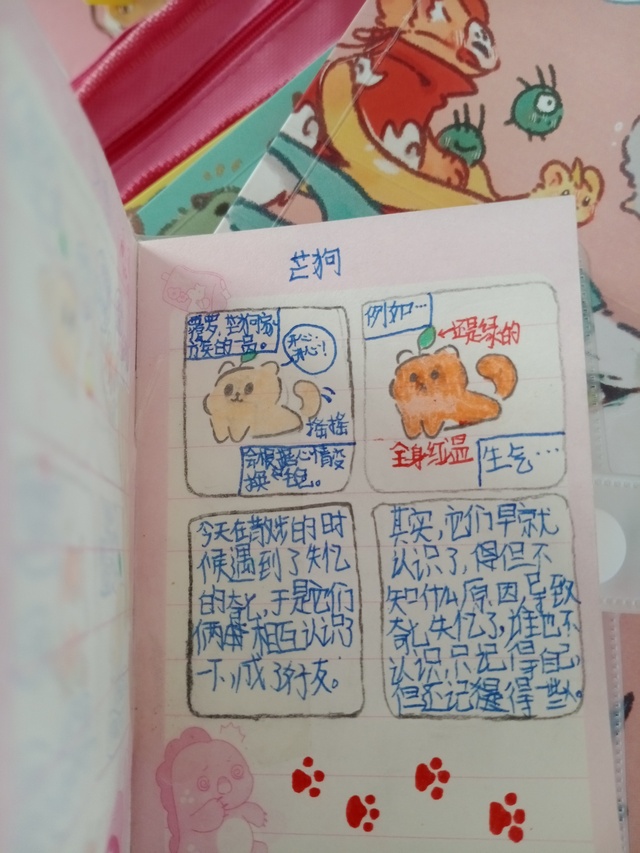 芒狗
菠罗,芒狗家
族的一员。
开心
开心!
摇摇
会根据心情变
换毛色。
例如…
←还是绿的
全身红温
生气…
今天在散步的时
候遇到了失忆
的奇化,于是它们
俩 相互认识了
一下,成了好友。
其实,它们早就
认识了,得但不
知什么原因,导致
奇化失忆了,谁也不
认识,只记得自己,
但还记得一些人。